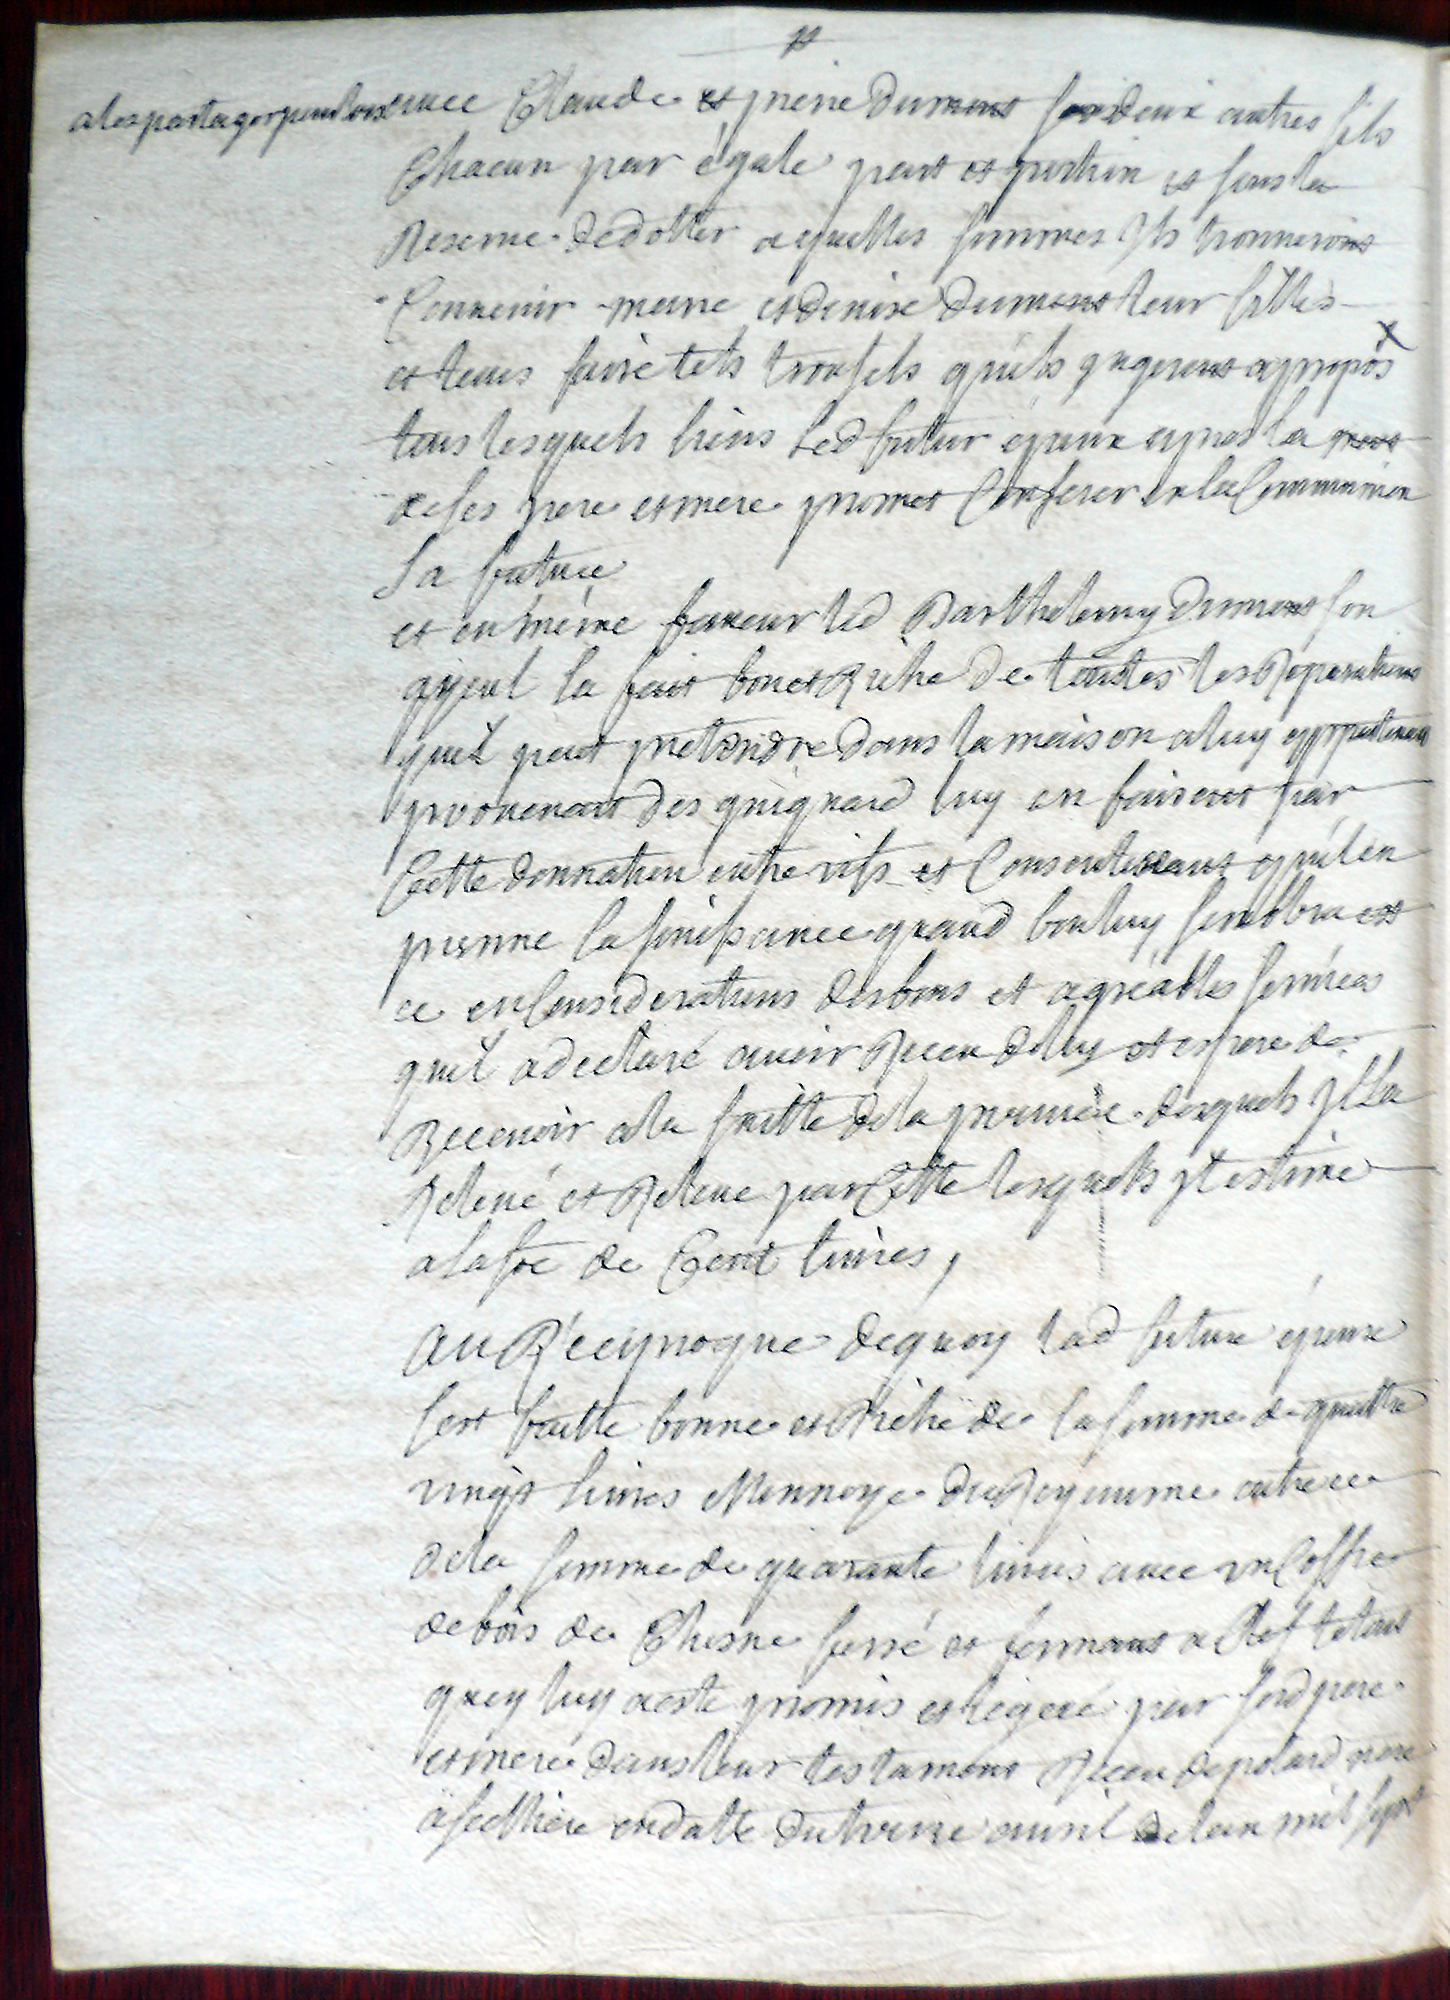 a les partager pour lors avec Claude et pierre Dumont ses deux autres fils
Chacun par égale part et portion et sous la
Reserve de dotter a quelles sommes Ils trouveront
Convenir marie et denise Dumont leur filles
et leurs faire tels troussels quils jugeront apropos
tous lesquels biens led futur époux apres la mort
de ses pere et mere promet Conferer en la Communion
sa future
et en même faveur led Barthelemy Dumont son
ayeul la fait bon et Riche de toutes les Réparations
quil peut pretendre dans la maison a luy appartenant
provenant des guignard luy en faisant par
Cette donnation entre vifs et Consentissant quil en
prenne la jouissance quand bon luy semblera et
ce en Considerations des bons et agréables services
quil a declaré avoir Receu de luy et espere de
Recevoir a la suitte de la preuve desquels Il la
Relevé et Releve par Cette lesquels Il estime
a la soe de Cent livres,
au Réciproque de quoy lad future épouse
sest faitte bonne et Riche de la somme de quattre
vingt livres Monnoye du Royaume outre ce
de la somme de quarante livres avec un Coffre
de bois de Chesne ferré et fermant a Clef le tout
quoy luy a esté promis et légué par sesd pere
et mere dans leur testament Receu depolard nore
a en datte du treize avril de lan mil sept